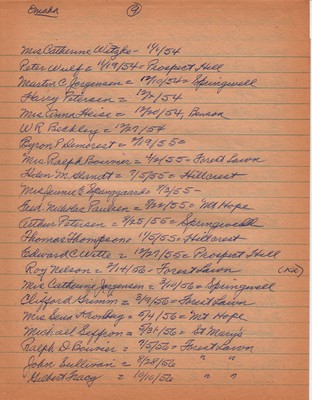 Omaha 9
Mrs Catherine Witzke - 1/1/54
Peter Wulf = 11/19/54 = Prospect Hill
Martin C Jorgensen = 12/10/54 = Springwell
Harry Petersen = 12/ /54
Mrs Anna Heise = 12/20/54, Benson
W R Beckley = 12/27/54
Byron F Demorest = 2/19/55 =
Mrs. Ralph Bouvier = 4/2/55 = Forest Lawn
Helen M. Arndt = 7/5/55 = Hillcrest
Mrs Jennie E. 9/2/55 -
Geo. Nicholas Paulsen = 9/22/55 = Mt Hope
Arthur Petersen = 9/25/55 = Springwell
Thomas Thompson = 11/5/55 = Hillcrest
Edward C Witte = 12/27/55 = Prospect Hill
Roy Nelson = 2/14/56 = Forest Lawn
Mrs Catherine Jorgensen = 3/10/56 = Springwell
Clifford Grimm = 3/9/56 = Forest Lawn
Mrs = 5/4/56 = Mt Hope
Michael = 5/31/56 = St Mary's
Ralph D Bouvier = 7/5/56 = Forest Lawn
John Sullivan = 8/28/56 " "
Hubert Tracy = 10/10/56 " "